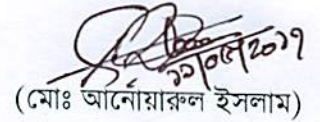 ১১/০৫/২০১৭
(মোঃ আনোয়ারুল ইসলাম)